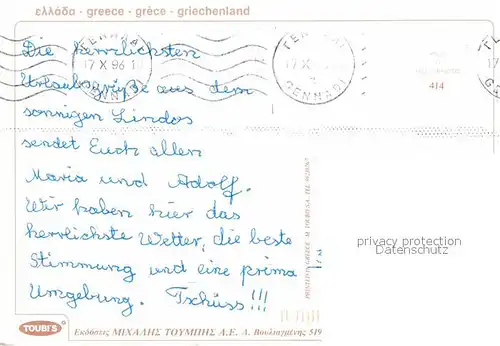 ελλάδα - greece - grèce - griechenland
ΓΕΝΝΑΔΙ
17 X 96 1
GENNADI
17 X
GENNADI
414
Die herrlichsten
Urlaubsgrüße aus dem
sonnigen Lindos
sendet Euch allen
Maria und Adolf.
Wir haben hier das
herrlichste Wetter, die beste
Stimmung und eine prima
Umgebung. Tschüss!!!
privacy protection
Datenschutz
TOUBI'S
Εκδόσεις ΜΙΧΑΛΗΣ ΤΟΥΜΠΗΣ Α.Ε. Λ. Βουλιαγμένης 519